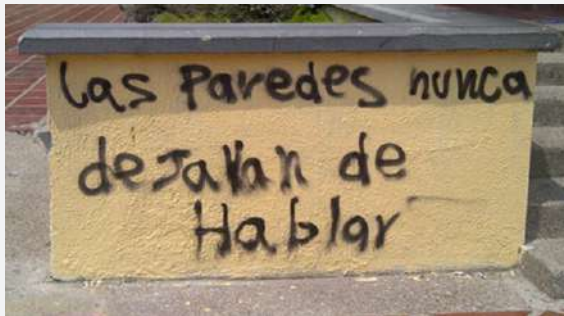 las paredes nunca
deJaran de
Hablar